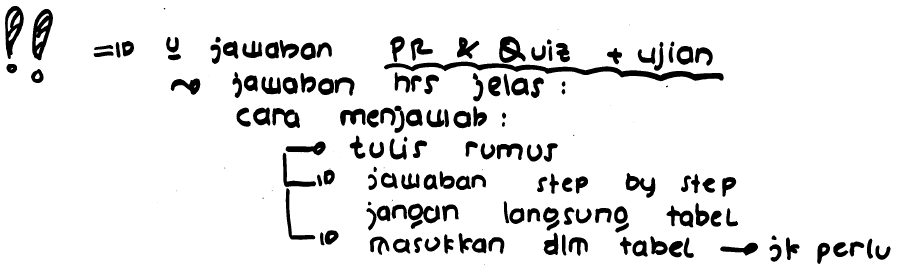 !! => u jawaban PR & Quiz + ujian
~ jawaban hrs jelas :
cara menjawab :
→ tulis rumus
→ jawaban step by step
jangan langsung tabel
→ masukkan dlm tabel → jk perlu